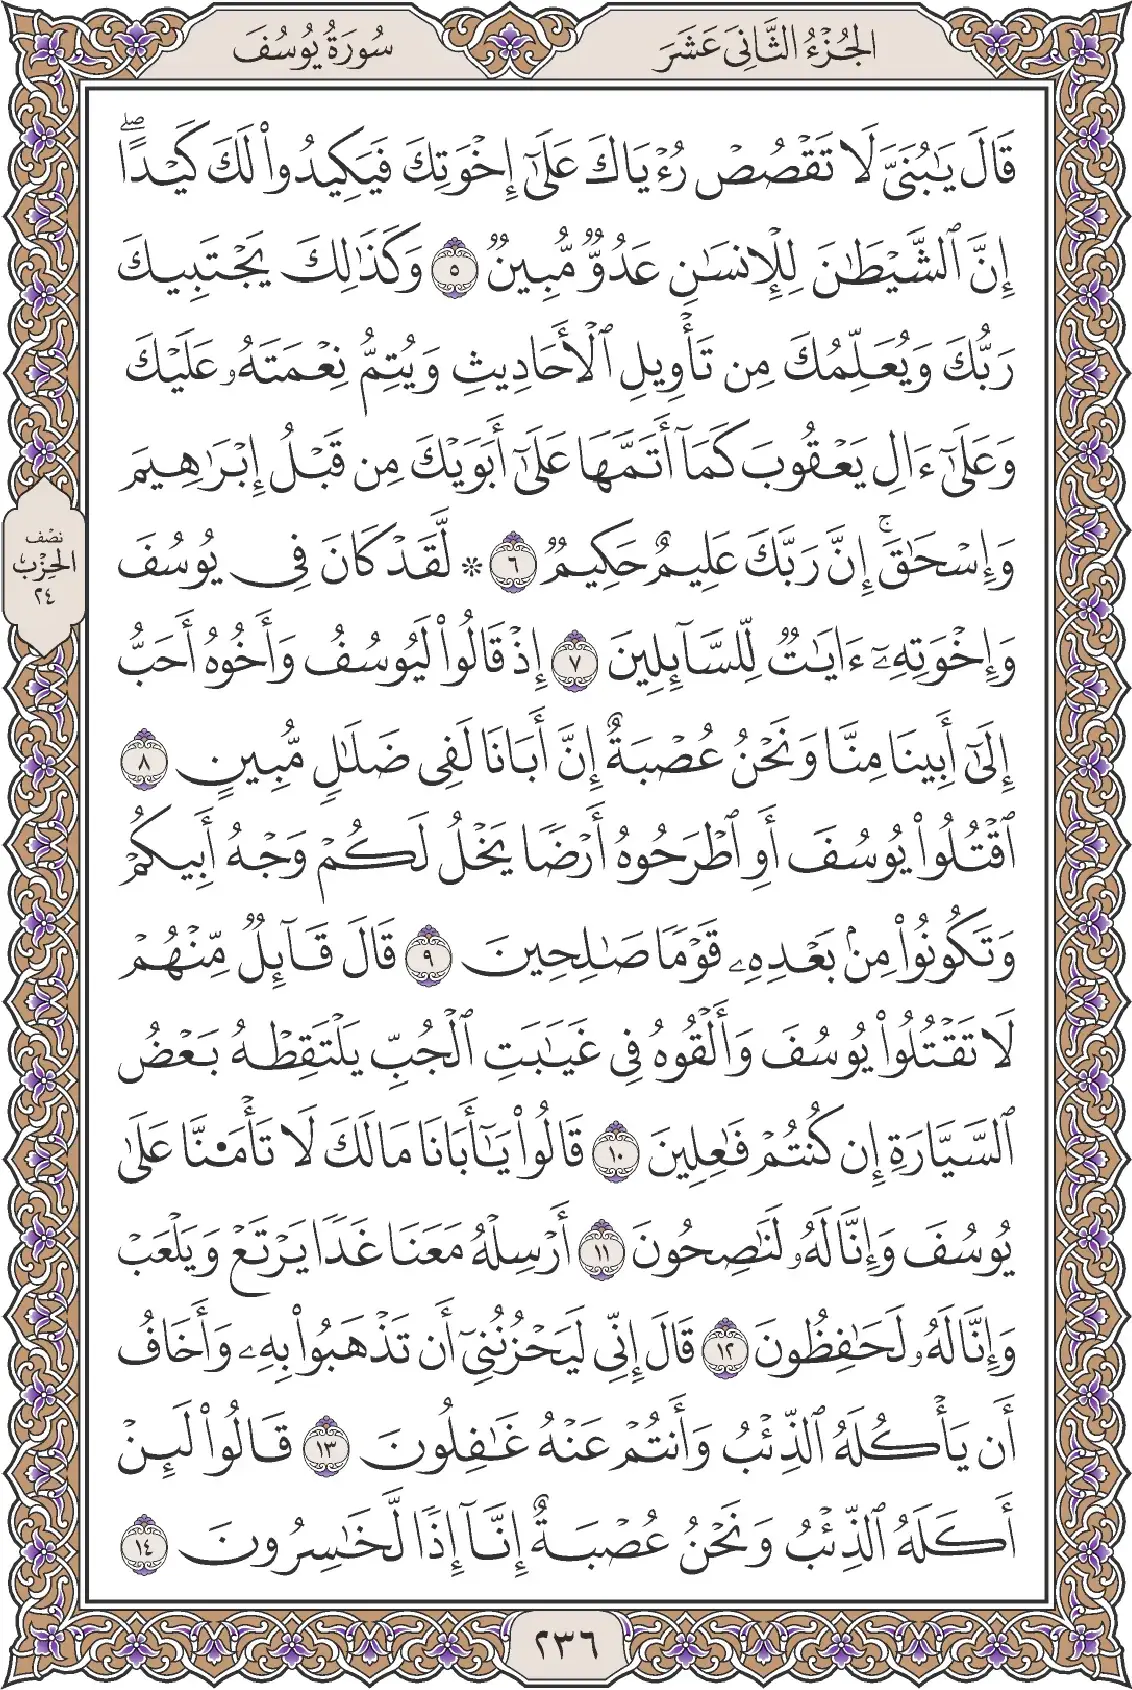 الجُزْءُ الثَّانِى عَشَرَ
سُورَةُ يُوسُفَ
قَالَ يَٰبُنَىَّ لَا تَقْصُصْ رُءْيَاكَ عَلَىٰٓ إِخْوَتِكَ فَيَكِيدُوا۟ لَكَ كَيْدًاۖ
إِنَّ ٱلشَّيْطَٰنَ لِلْإِنسَٰنِ عَدُوٌّ مُّبِينٌ ٥ وَكَذَٰلِكَ يَجْتَبِيكَ
رَبُّكَ وَيُعَلِّمُكَ مِن تَأْوِيلِ ٱلْأَحَادِيثِ وَيُتِمُّ نِعْمَتَهُۥ عَلَيْكَ
وَعَلَىٰٓ ءَالِ يَعْقُوبَ كَمَآ أَتَمَّهَا عَلَىٰٓ أَبَوَيْكَ مِن قَبْلُ إِبْرَٰهِيمَ
وَإِسْحَٰقَۚ إِنَّ رَبَّكَ عَلِيمٌ حَكِيمٌ ٦ ۞ لَّقَدْ كَانَ فِى يُوسُفَ
وَإِخْوَتِهِۦٓ ءَايَٰتٌ لِّلسَّآئِلِينَ ٧ إِذْ قَالُوا۟ لَيُوسُفُ وَأَخُوهُ أَحَبُّ
إِلَىٰٓ أَبِينَا مِنَّا وَنَحْنُ عُصْبَةٌ إِنَّ أَبَانَا لَفِى ضَلَٰلٍ مُّبِينٍ ٨
ٱقْتُلُوا۟ يُوسُفَ أَوِ ٱطْرَحُوهُ أَرْضًا يَخْلُ لَكُمْ وَجْهُ أَبِيكُمْ
وَتَكُونُوا۟ مِنۢ بَعْدِهِۦ قَوْمًا صَٰلِحِينَ ٩ قَالَ قَآئِلٌ مِّنْهُمْ
لَا تَقْتُلُوا۟ يُوسُفَ وَأَلْقُوهُ فِى غَيَٰبَتِ ٱلْجُبِّ يَلْتَقِطْهُ بَعْضُ
ٱلسَّيَّارَةِ إِن كُنتُمْ فَٰعِلِينَ ١٠ قَالُوا۟ يَٰٓأَبَانَا مَالَكَ لَا تَأْمَ۬نَّا عَلَىٰ
يُوسُفَ وَإِنَّا لَهُۥ لَنَٰصِحُونَ ١١ أَرْسِلْهُ مَعَنَا غَدًا يَرْتَعْ وَيَلْعَبْ
وَإِنَّا لَهُۥ لَحَٰفِظُونَ ١٢ قَالَ إِنِّى لَيَحْزُنُنِىٓ أَن تَذْهَبُوا۟ بِهِۦ وَأَخَافُ
أَن يَأْكُلَهُ ٱلذِّئْبُ وَأَنتُمْ عَنْهُ غَٰفِلُونَ ١٣ قَالُوا۟ لَئِنْ
أَكَلَهُ ٱلذِّئْبُ وَنَحْنُ عُصْبَةٌ إِنَّآ إِذًا لَّخَٰسِرُونَ ١٤
نصف
الحزب
٢٤
٢٣٦